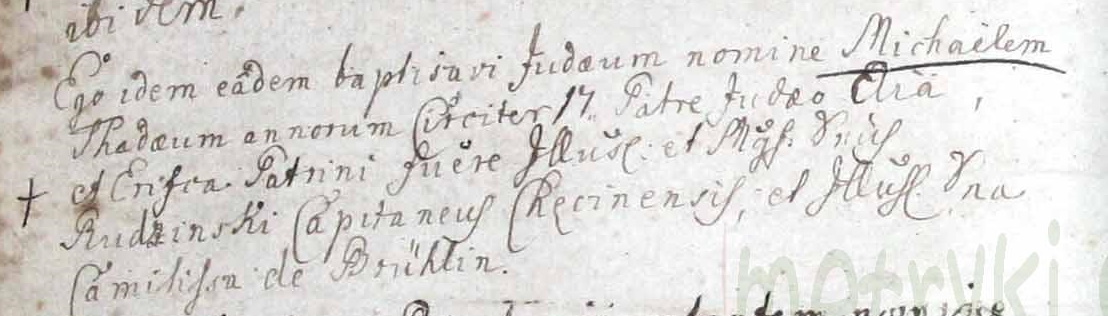 ibidem.
Ego idem eâdem baptisavi Judæum nomine Michaëlem
Thadæum annorum Circiter 17. Patre Judæo Elia,
et Erifca. Patrini fuêre Illus: et Mgf: Dnus
† Rudzinski Capitaneus Chęcinensis, et Illus. Dna
Camilissa de Brühlin.
metryki